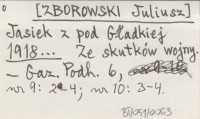 [ZBOROWSKI Juliusz]
Jasiek z pod Gładkiej
1918... Ze skutków wojny.
– Gaz. Podh. 6,
nr 9: 2-4; nr 10: 3-4.